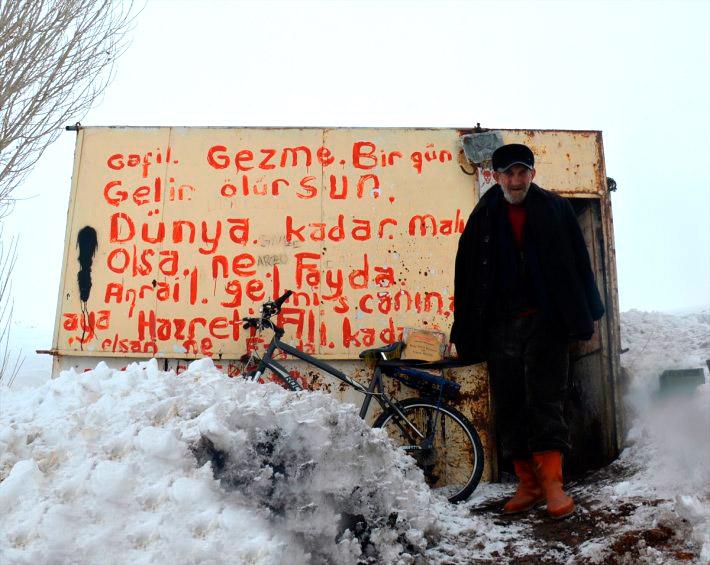 Gafil. Gezme. Bir gün
Gelir ölürsün.
Dünya. kadar malı
Olsa. ne Fayda
gelmiş canına
Hazreti Ali. kadar
olsan ne